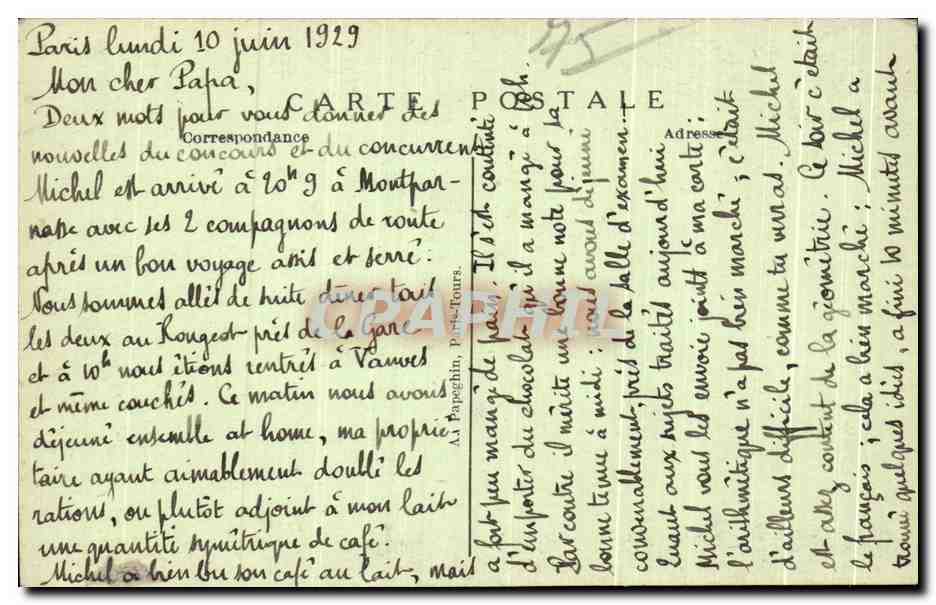 Paris lundi 10 juin 1929
Mon cher Papa,
CARTE POSTALE
Correspondance
Adresse
Deux mots pour vous donner des
nouvelles du concours et du concurrent.
Michel est arrivé à 20h9 à Montpar-
nasse avec ses 2 compagnons de route
après un bon voyage assis et serré.
Nous sommes allés de suite dîner tous
les deux au Rougeot près de la Gare
et à 10h nous étions rentrés à Vanves
et même couchés. Ce matin nous avons
déjeuné ensemble at home, ma proprié-
taire ayant aimablement doublé les
rations, ou plutôt adjoint à mon lait
une quantité symétrique de café.
Michel a bien bu son café au lait, mais
a fort peu mangé de pain. Il s'est contenté
d'emporter du chocolat qu'il a mangé à 8h.
Par contre il mérite une bonne note pour sa
bonne tenue à midi : nous avons déjeuné
convenablement près de la salle d'examen...
Quant aux sujets traités aujourd'hui
Michel vous les envoie joints à ma carte;
l'arithmétique n'a pas bien marché; c'était
d'ailleurs difficile, comme tu verras. Michel
est assez content de la géométrie. Ce soir c'était
le français; cela a bien marché; Michel a
trouvé quelques idées, a fini 10 minutes avant
A. Papeghin, Paris-Tours.
75
CPAPHIL